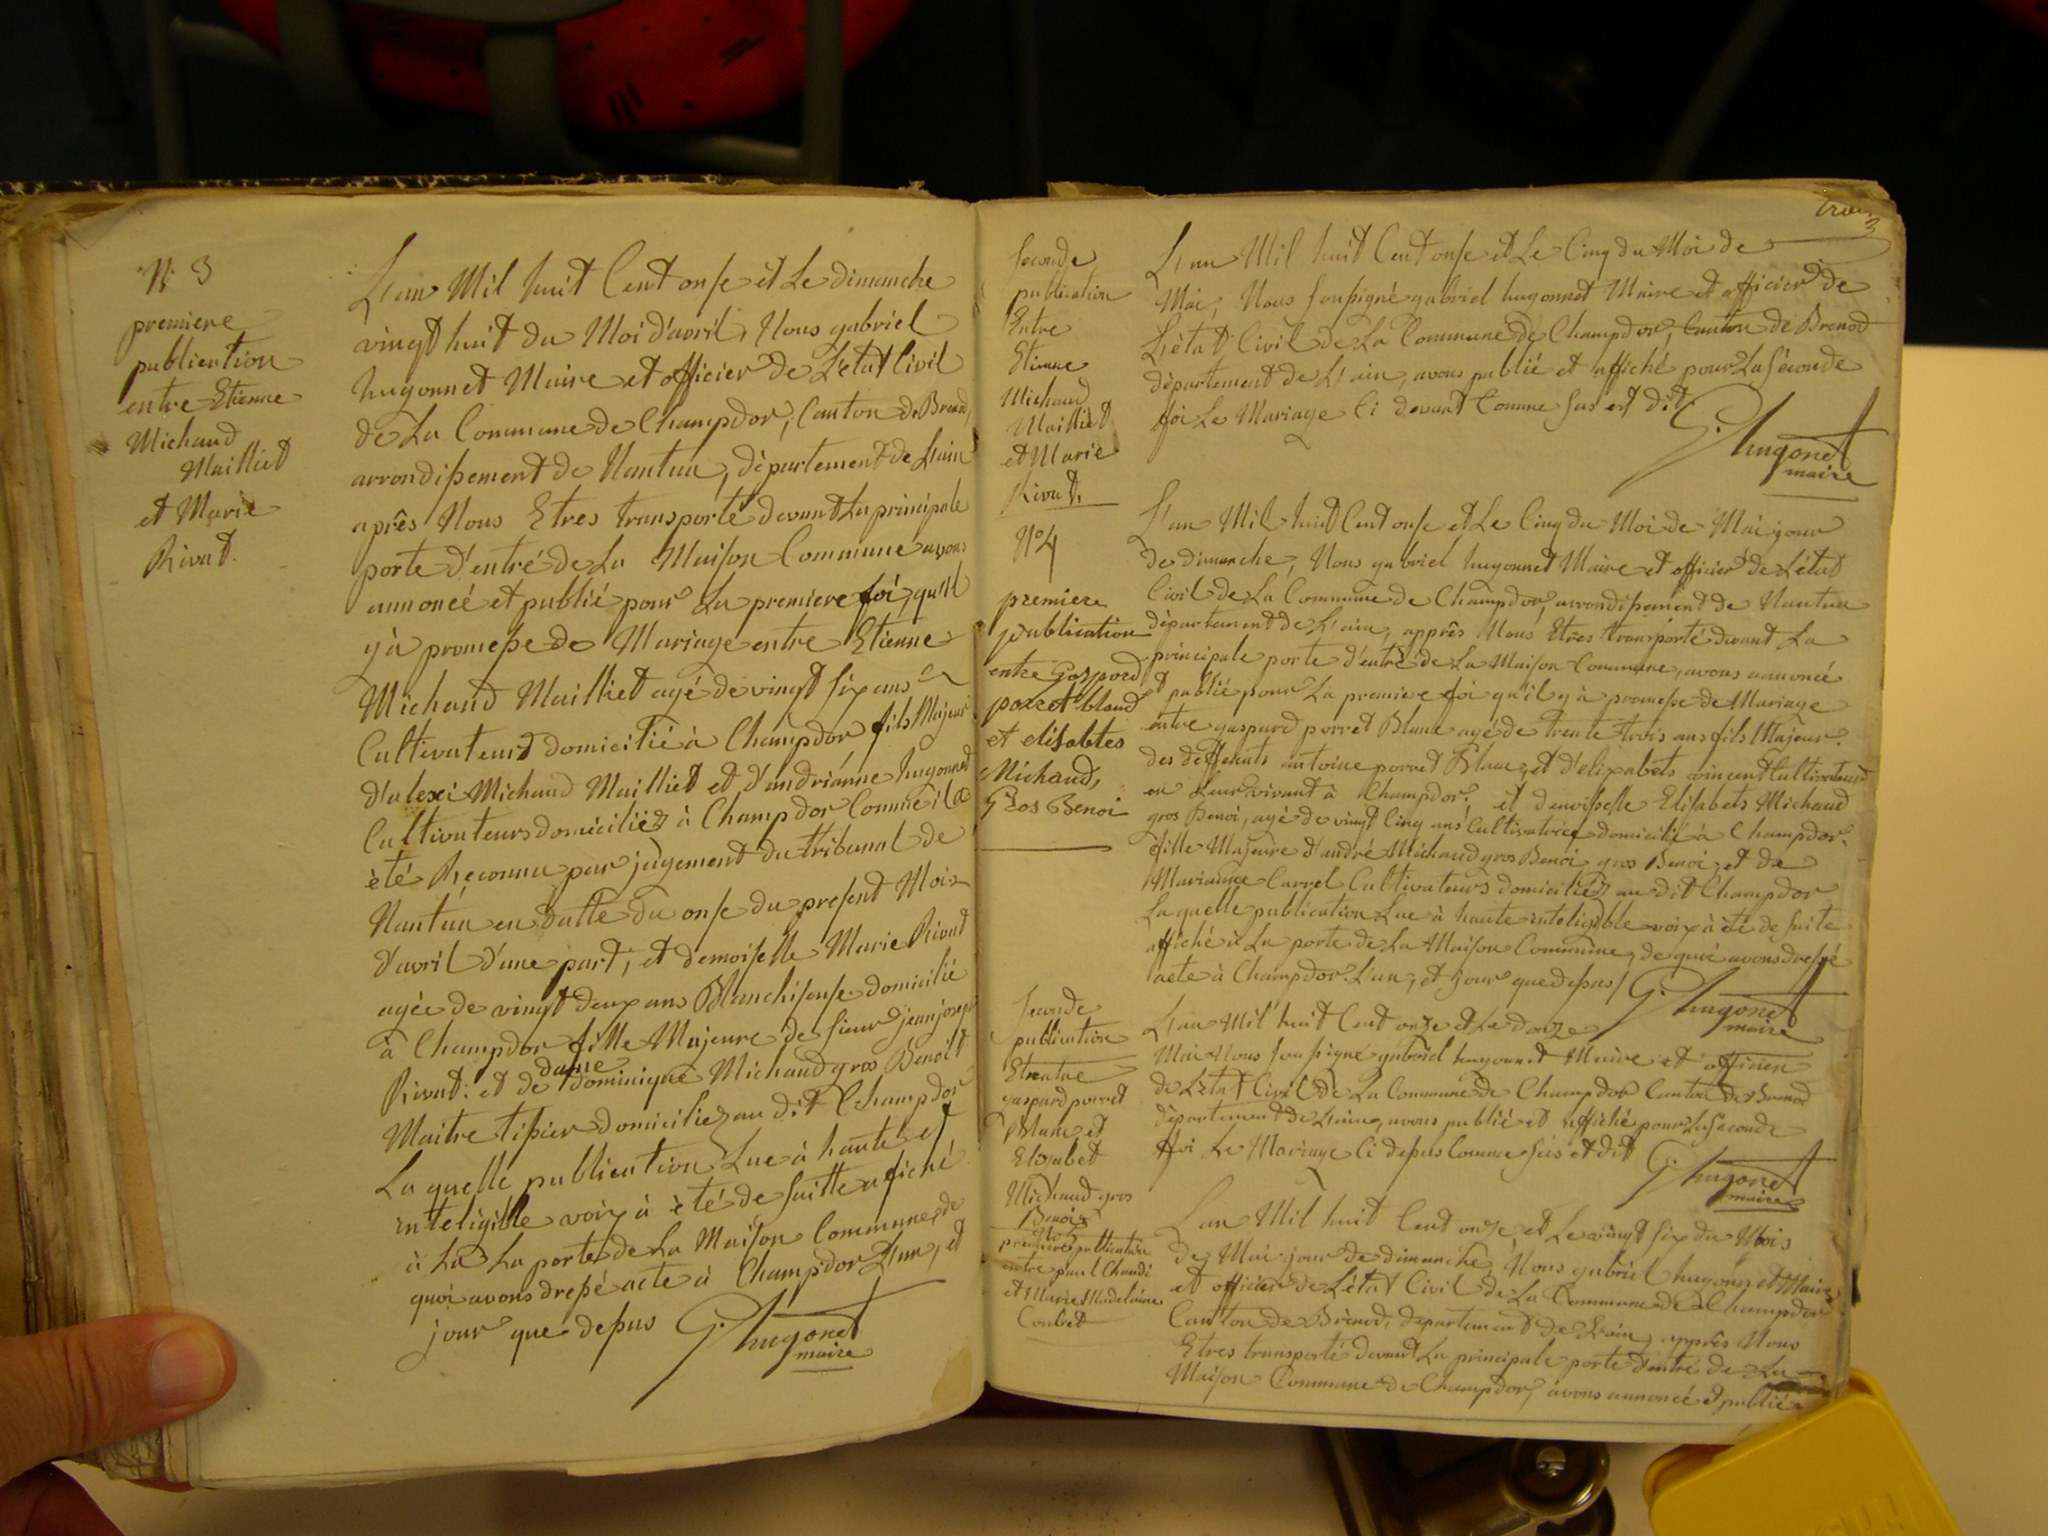 N: 3
premiere
publication
entre Etienne
Michaud
Mailliet
et Marie
Rivat.
L'an Mil huit Cent onse et Le dimanche
vingt huit du Moi d'avril, Nous gabriel
hugonnet Maire et officier de L'état Civil
de La Commune de Champdor, Canton de Brenod,
arrondissement de Nantua, département de L'ain
après Nous Etres transporté devant La principale
porte d'entré de La Maison Commune avons
annoncé et publié pour La premiere foi, qu'il
y à promesse de Mariage entre Etienne
Michaud Mailliet agé de vingt six ans
Cultivateurs domicilié à Champdor fils Majeur
d'alexi Michaud Mailliet et d'andrianne hugonnet
Cultivateurs domiciliéz à Champdor Comme il a
été Reconnu par jugement du tribunal de
Nantua en datte du onse du present Mois
d'avril d'une part, et demoiselle Marie Rivat
agée de vingt deux ans Blanchiseuse domicilié
à Champdor fille Majeure de sieur jean joseph
Rivat: et de dame dominique Michaud gros Benoit
Maitre tissier domiciliez au dit Champdor
La quelle publication Lue à haute et
inteligible voix à été de suitte affiché
à La La porte de La Maison Commune, de
quoi avons dressé acte à Champdor L'an, et
jour que dessus G. hugonet
maire
trois
3
Seconde
publication
Entre
Etienne
Michaud
Mailliet
et Marie
Rivat.
L'an Mil huit Cent onse et Le Cinq du Moi de
Mai, Nous soussigné gabriel hugonnet Maire et officier de
L'état Civil de La Commune de Champdor, Canton de Brenod
département de L'ain, avons publié et affiché pour La séconde
foi Le Mariage Ci devant Comme sus est dit
G. hugonet
maire
N° 4
premiere
publication
entre Gaspard
porret bland
et elisabtes
Michaud,
Gros Benoi
L'an Mil huit Cent onse et Le Cinq du Moi de Mai jour
de dimanche, Nous gabriel hugonnet Maire et officier de L'état
Civil de La Commune de Champdor, arrondissement de Nantua
département de L'ain, apprês Nous Etres transporté devant La
principale porte d'entré de La Maison Commune, avons annoncé
et publié pour La premiere foi qu'il y à promesse de Mariage
entre gaspard porret Blanc agé de trente trois ans fils Majeur
des deffents antoine porret Blanc, et d'elixabets vincent Cultivateurs
en Leur vivant à Champdor, et demoiselle Elisabets Michaud
gros Benoi, agé de vingt Cinq ans Cultivatrice domicilié à Champdor
fille Majeure d'andré Michaud gros Benoi gros Benoi, et de
Marianne Carrel Cultivateurs domiciliéz au dit Champdor
La quelle publication Lue à haute inteligible voix à été de suite
affiché à La porte de La Maison Commune, de quoi avons dressé
acte à Champdor L'an, et jour que dessus / G. hugonet
maire
Seconde
publication
Etrentre
gaspard porret
Blanc, et
Elisabet
Michaud gros
Benoi
L'an Mil huit Cent onze et Le douze
Mai Nous soussigné gabriel hugonnet Maire et officier
de L'état Civil de La Commune de Champdor Canton de Brenod
département de L'ain, avons publié et affiché pour La Seconde
foi Le Mariage Ci dessus Comme sus et dit
G. hugonet
maire
premiere publication
entre paul Chaudi
et Marie Madelaine
Coubet
L'an Mil huit Cent onze, et Le vingt six du Mois
de Mai jour de dimanche, Nous gabriel hugonnet Maire
et officier de L'état Civil de La Commune de Champdor
Canton de Brénod, département de L'ain, apprês Nous
Etres transporté devant La principale porte d'entré de La
Maison Commune de Champdor, avons annoncé et publié